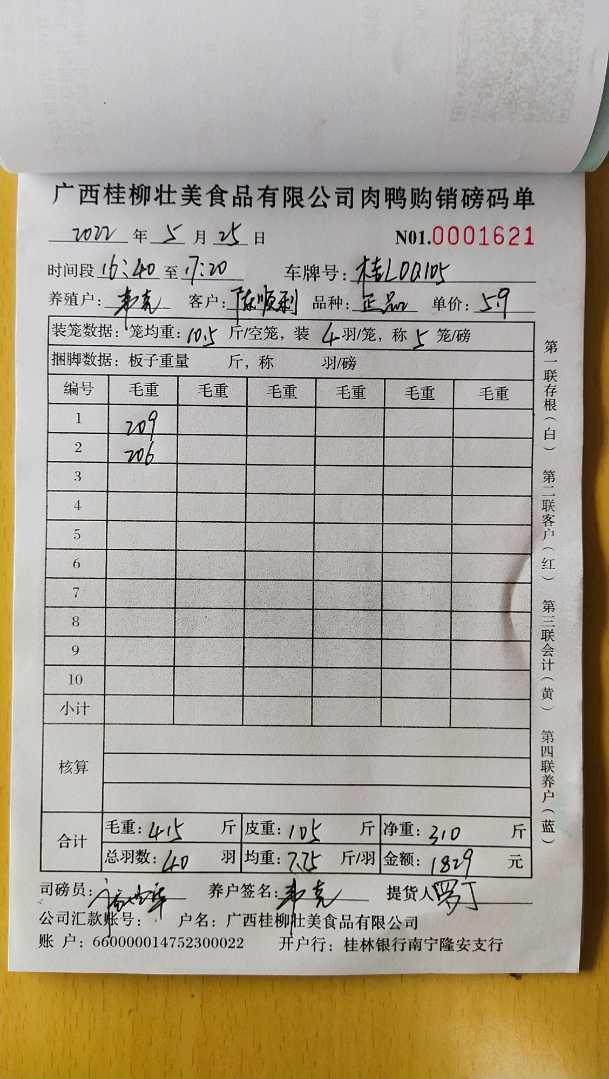 广西桂柳壮美食品有限公司肉鸭购销磅码单
2022 年 5 月 25 日 N01.0001621
时间段 16:40 至 17:20 车牌号: 桂LDQ105
养殖户: 韦克 客户: 陈顺利 品种: 正品 单价: 5.9
装笼数据: 笼均重: 10.5 斤/空笼, 装 4 羽/笼, 称 5 笼/磅
捆脚数据: 板子重量 斤, 称 羽/磅
编号 毛重 毛重 毛重 毛重 毛重 毛重
1 209
2 206
3
4
5
6
7
8
9
10
小计
核算
合计 毛重: 415 斤 皮重: 105 斤 净重: 310 斤
总羽数: 40 羽 均重: 7.75 斤/羽 金额: 1829 元
司磅员: 养户签名: 韦克 提货人 罗丁
公司汇款账号: 户名: 广西桂柳壮美食品有限公司
账 户: 660000014752300022 开户行: 桂林银行南宁隆安支行
第一联存根(白) 第二联客户(红) 第三联会计(黄) 第四联养户(蓝)